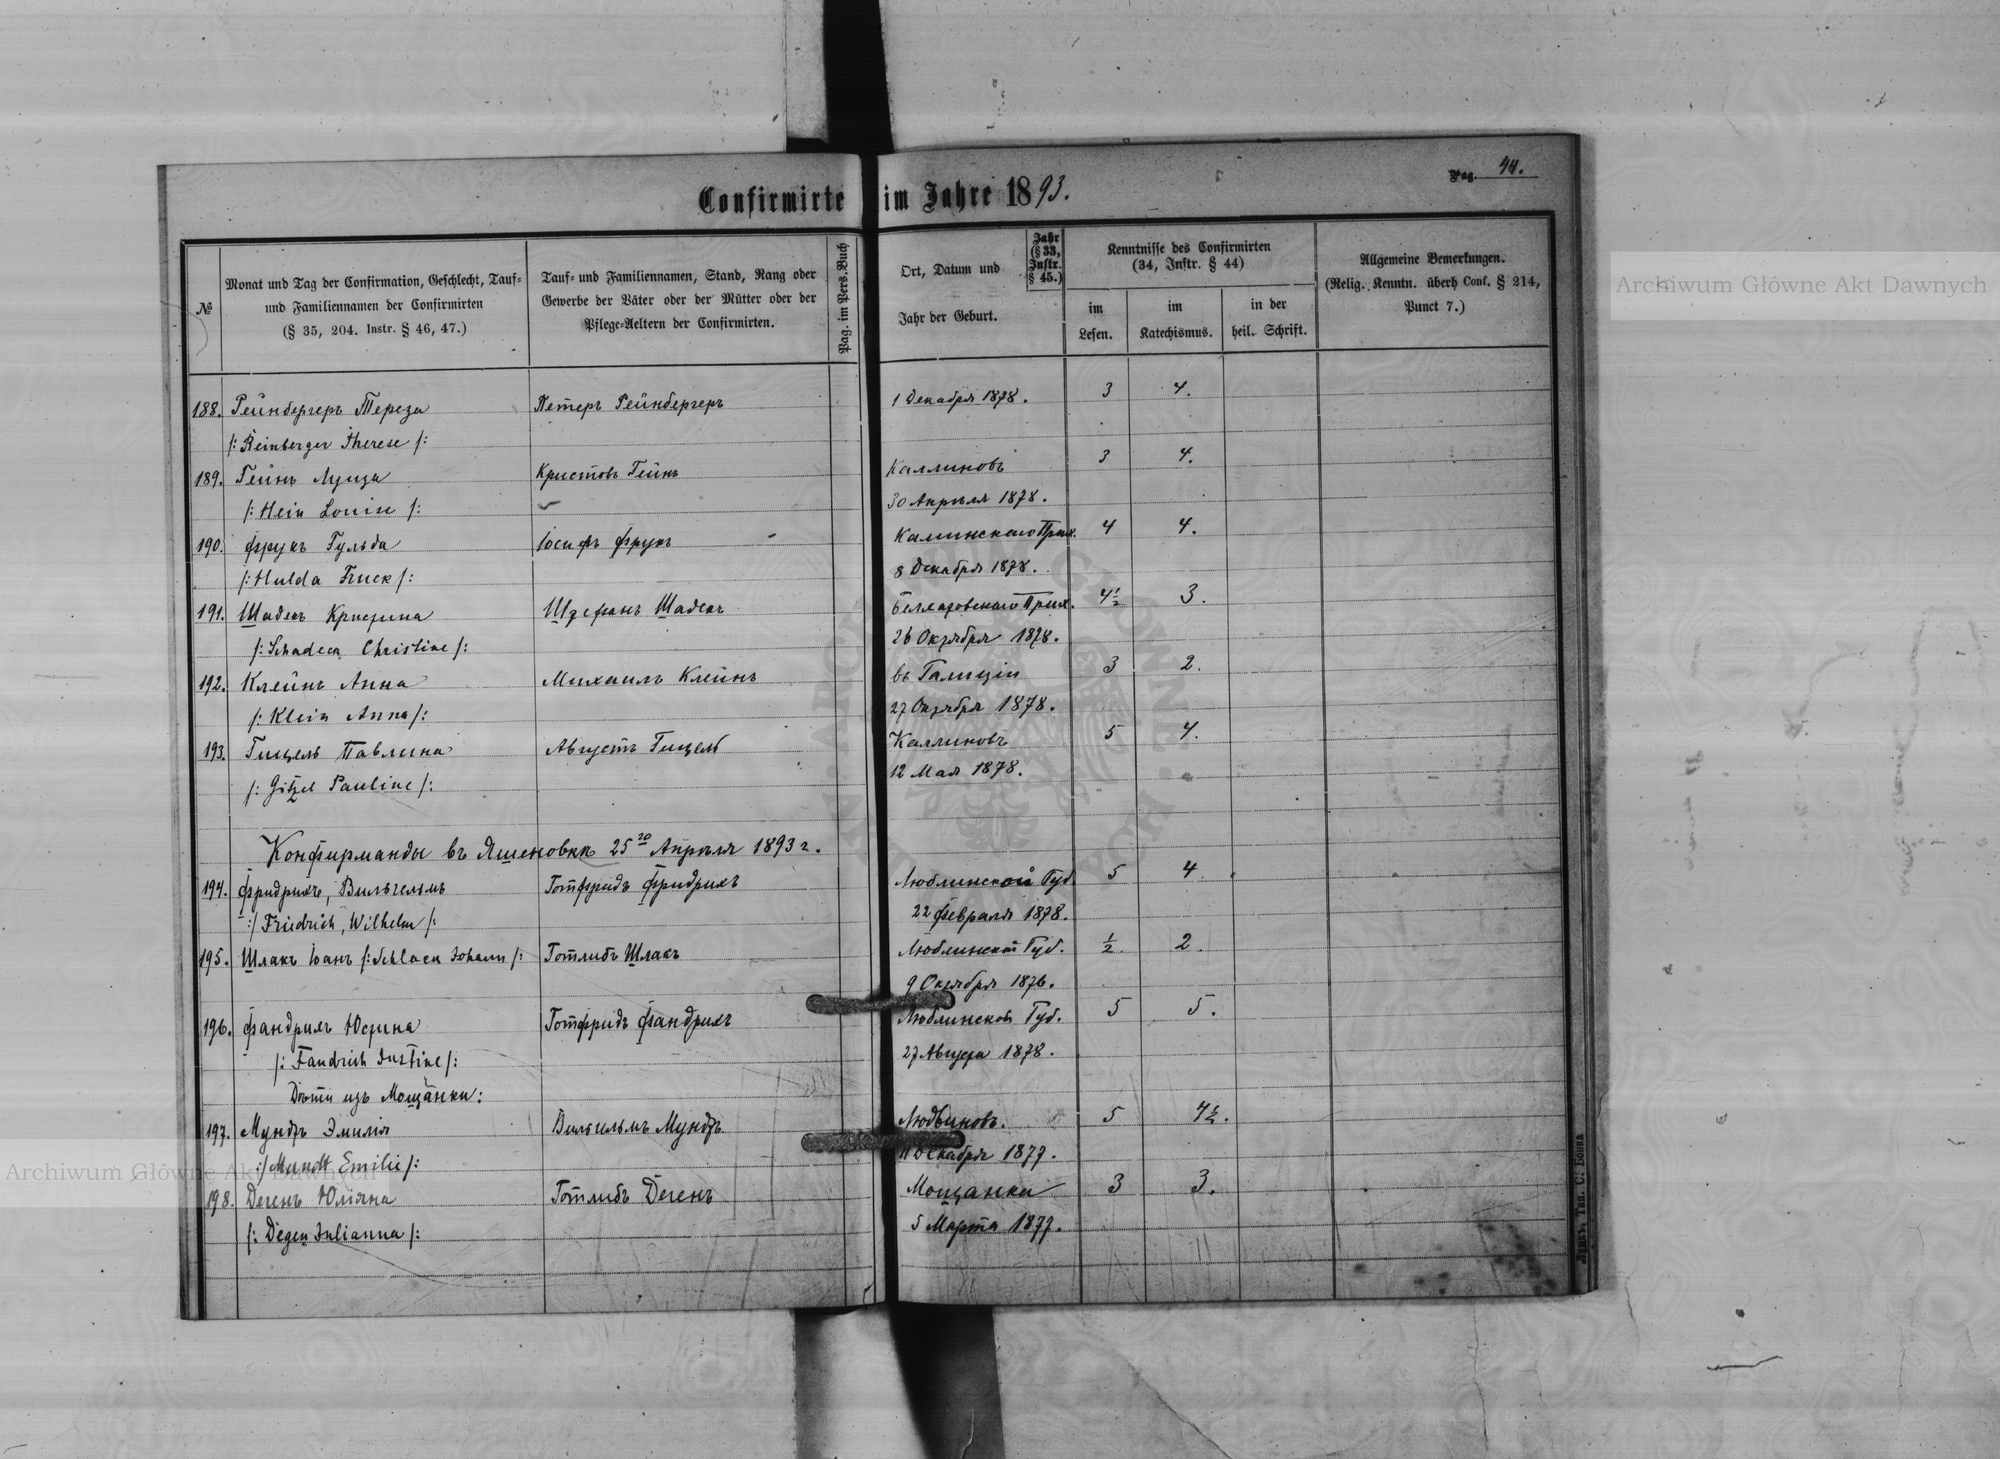 Pag. 44.
Confirmirte im Jahre 1893.
№
Monat und Tag der Confirmation, Geschlecht, Tauf-
und Familiennamen der Confirmirten
(§ 35, 204. Instr. § 46, 47.)
Tauf- und Familiennamen, Stand, Rang oder
Gewerbe der Väter oder der Mütter oder der
Pflege-Aeltern der Confirmirten.
Pag. im Pers. Buch
Ort, Datum und
Jahr der Geburt.
Jahr
(§ 33,
Instr.
§ 45.)
Kenntnisse des Confirmirten
(34, Instr. § 44)
im
Lesen.
im
Katechismus.
in der
heil. Schrift.
Allgemeine Bemerkungen.
(Relig. Kenntn. überh Conf. § 214,
Punct 7.)
188. Рейнбергеръ Тереза Петеръ Рейнбергеръ 1 Декабря 1878. 3 4.
/: Reinberger Therese /:
189. Гейнъ Луиза Кристовъ Гейнъ Каллиновъ 3 4.
/: Hein Louise /: 30 Апрѣля 1878.
190. Фрукъ Гульда Іосифъ Фрукъ Калинскаго Прих. 4 4.
/: Hulda Fruck /: 8 Декабря 1878.
191. Шадекъ Кристина Штефанъ Шадекъ Прих. 4½ 3.
/: Schadeck Christine /: 26 Октября 1878.
192. Клейнъ Анна Михаилъ Клейнъ въ Галиціи 3 2.
/: Klein Anna /: 27 Октября 1878.
193. Гицель Павлина Августъ Гицель Каллиновъ 5 4.
/: Gitzel Pauline /: 12 Мая 1878.
Конфирманды въ Яшеновкѣ 25го Апрѣля 1893 г.
194. Фридрихъ, Вильгельмъ Готфридъ Фридрихъ Люблинской Губ. 5 4
:/ Friedrich, Wilhelm /: 22 Февраля 1878.
195. Шлакъ Іоанъ /: Schlack Johann /: Готлибъ Шлакъ Люблинской Губ. ½ 2.
9 Октября 1876.
196. Фандрихъ Юстина Готфридъ Фандрихъ Люблинской Губ. 5 5.
/: Fandrich Justine /: 27 Августа 1878.
Дѣти изъ Мощанки:
197. Мундтъ Эмилія Вильгельмъ Мундтъ Людвиковъ. 5 4½.
:/ Mundt Emilie /: Декабря 1877.
198. Дегенъ Юліяна Готлибъ Дегенъ Мощанки 3 3.
/: Degen Julianna /: 5 Марта 1877.
Тип. С. Бона
Archiwum Główne Akt Dawnych
Archiwum Główne Akt Dawnych